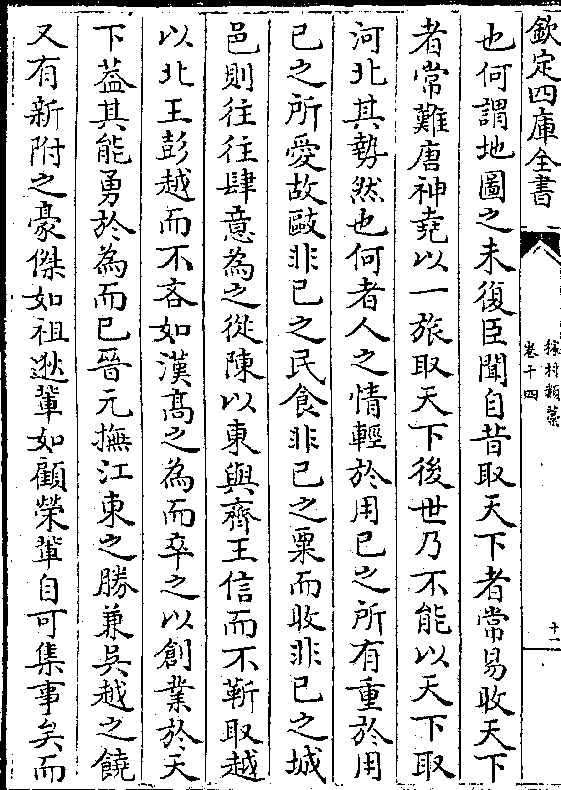 欽定四庫全書
稼村類藁
卷十四
十一
也何謂地圖之未復臣聞自昔取天下者常易收天下
者常難唐神堯以一旅取天下後世乃不能以天下取
河北其勢然也何者人之情輕於用已之所有重於用
已之所愛故敺非已之民食非已之粟而收非已之城
邑則往往肆意為之從陳以東與齊王信而不靳取越
以北王彭越而不吝如漢髙之為而卒之以創業於天
下葢其能勇於為而已晉元撫江東之勝兼吳越之饒
又有新附之豪傑如祖逖軰如顧榮軰自可集事矣而